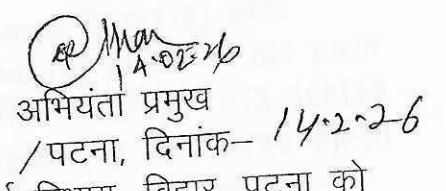 14.02.26
अभियंता प्रमुख
/पटना, दिनांक– 14.2.26
विभाग, बिहार, पटना को